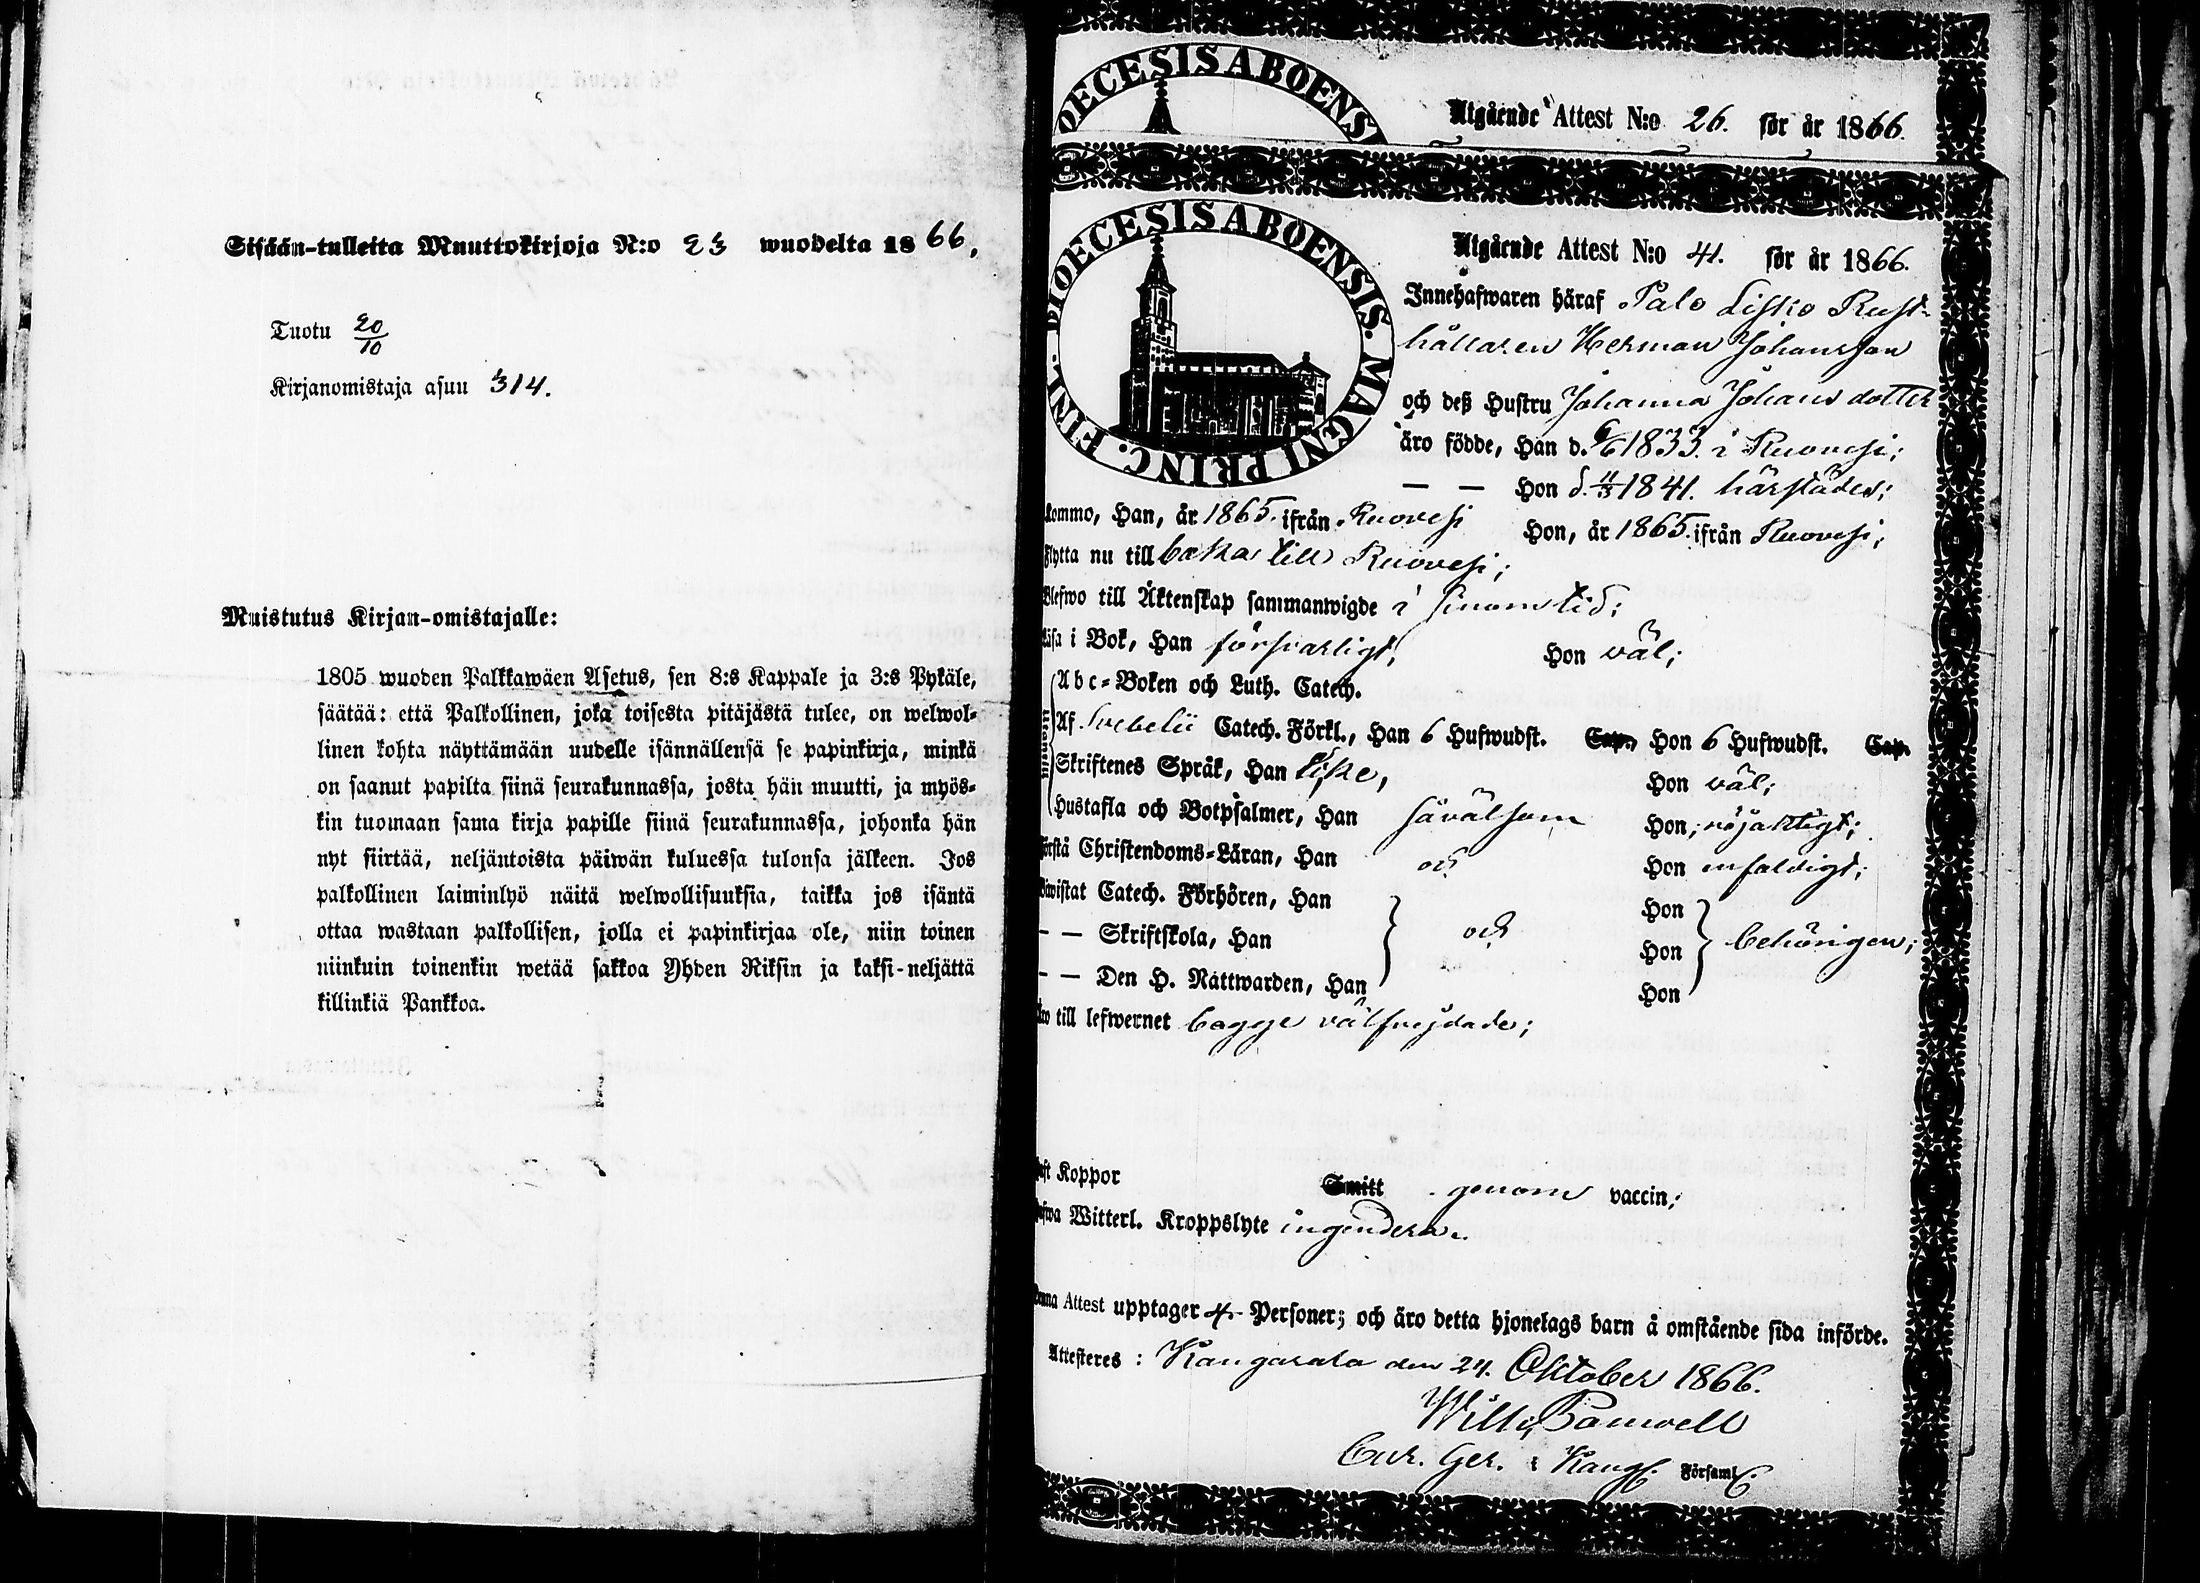 Sisään-tulleita Muuttokirjoja N:o 23 wuodelta 1866,
Tuotu 20/10
Kirjanomistaja asuu 314.
Muistutus Kirjan-omistajalle:
1805 wuoden Palkkawäen Asetus, sen 8:s Kappale ja 3:s Pykäle,
säätää: että Palkollinen, joka toisesta pitäjästä tulee, on welwol-
linen kohta näyttämään uudelle isännällensä se papinkirja, minkä
on saanut papilta siinä seurakunnassa, josta hän muutti, ja myös-
kin tuomaan sama kirja papille siinä seurakunnassa, johonka hän
nyt siirtää, neljäntoista päiwän kuluessa tulonsa jälkeen. Jos
palkollinen laiminlyö näitä welwollisuuksia, taikka jos isäntä
ottaa wastaan palkollisen, jolla ei papinkirjaa ole, niin toinen
niinkuin toinenkin wetää sakkoa Yhden Riksin ja kaksi-neljättä
killinkiä Pankkoa.
DIOECESIS ABOENSIS
Utgående Attest N:o 26. för år 1866.
DIOECESIS ABOENSIS. MAGNI PRINC. FINL.
Utgående Attest N:o 41. för år 1866.
Innehafwaren häraf Palo Lisko Rust-
hållaren Herman Johansson
och deß Hustru Johanna Johansdotter
äro födde, Han d. 6/6 1833. i Ruovesi;
— — Hon d. 11/3 1841. härstädes;
kommo, Han, år 1865. ifrån Ruovesi Hon, år 1865. ifrån Ruovesi;
Flytta nu till baka till Ruovesi;
Blefwo till Äktenskap sammanwigde i sinom tid;
Läsa i Bok, Han försvarligt, Hon väl;
Abc-Boken och Luth. Catech.
Af Svebelii Catech. Förkl., Han 6 Hufwudst. Cap., Hon 6 Hufwudst. Cap.
Skriftenes Språk, Han like, Hon väl;
Hustafla och Botpsalmer, Han såvälsom Hon; nöjaktigt;
Förstå Christendoms-Läran, Han och Hon enfaldigt;
Biwistat Catech. Förhören, Han Hon
— — Skriftskola, Han och Hon behörigen;
— — Den H. Nattwarden, Han Hon
Äro till lefwernet bägge välfrejdade;
haft Koppor Smitt genom vaccin;
hafwa Witterl. Kroppslyte ingendera.
Denna Attest upptager 4 Personer; och äro detta hjonelags barn å omstående sida införde.
Attesteres: Kangasala den 24. Oktober 1866.
Cur. Ger. i Kang. Församl.